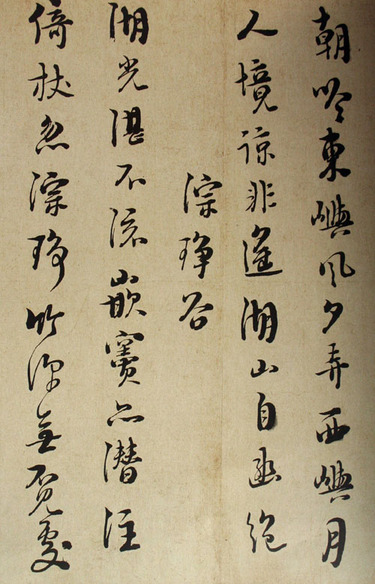 朝吟東嶼風夕弄西嶼月
人境諒非遙湖山自幽絕
淙琤谷
湖光湛不流嵌竇亦潛注
倚杖忽淙琤竹深無覓處